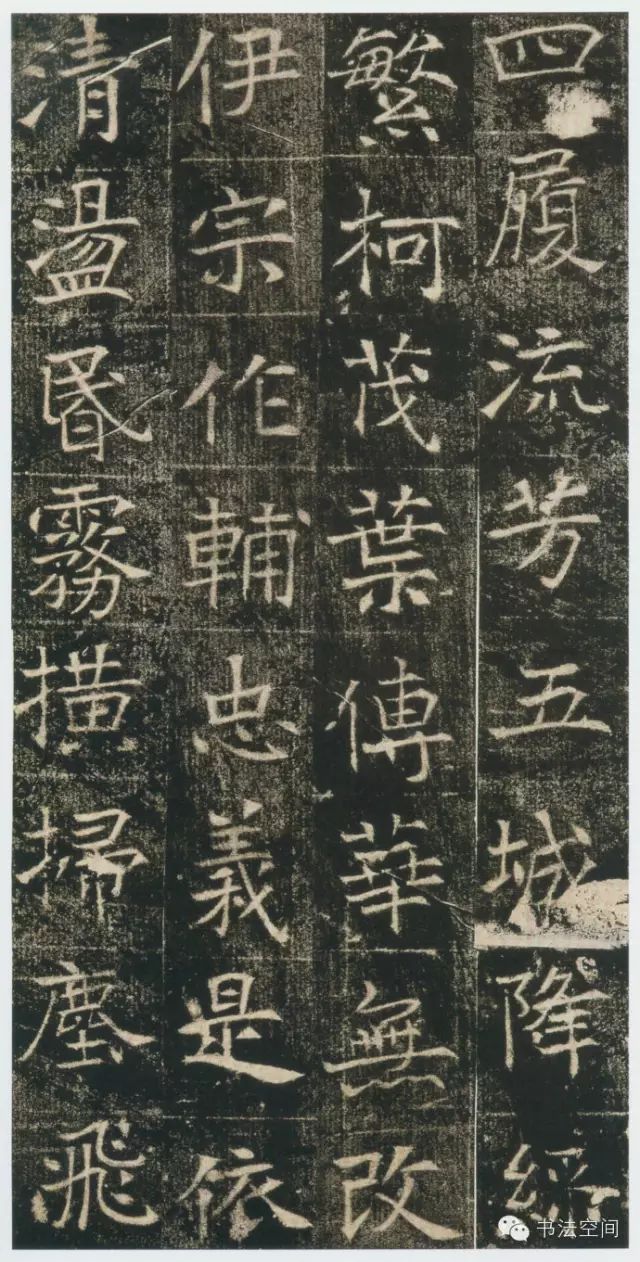 四履流芳五城降
繁柯茂葉傳華無改
伊宗作輔忠義是依
清盪昬霧撗掃塵飛
书法空间